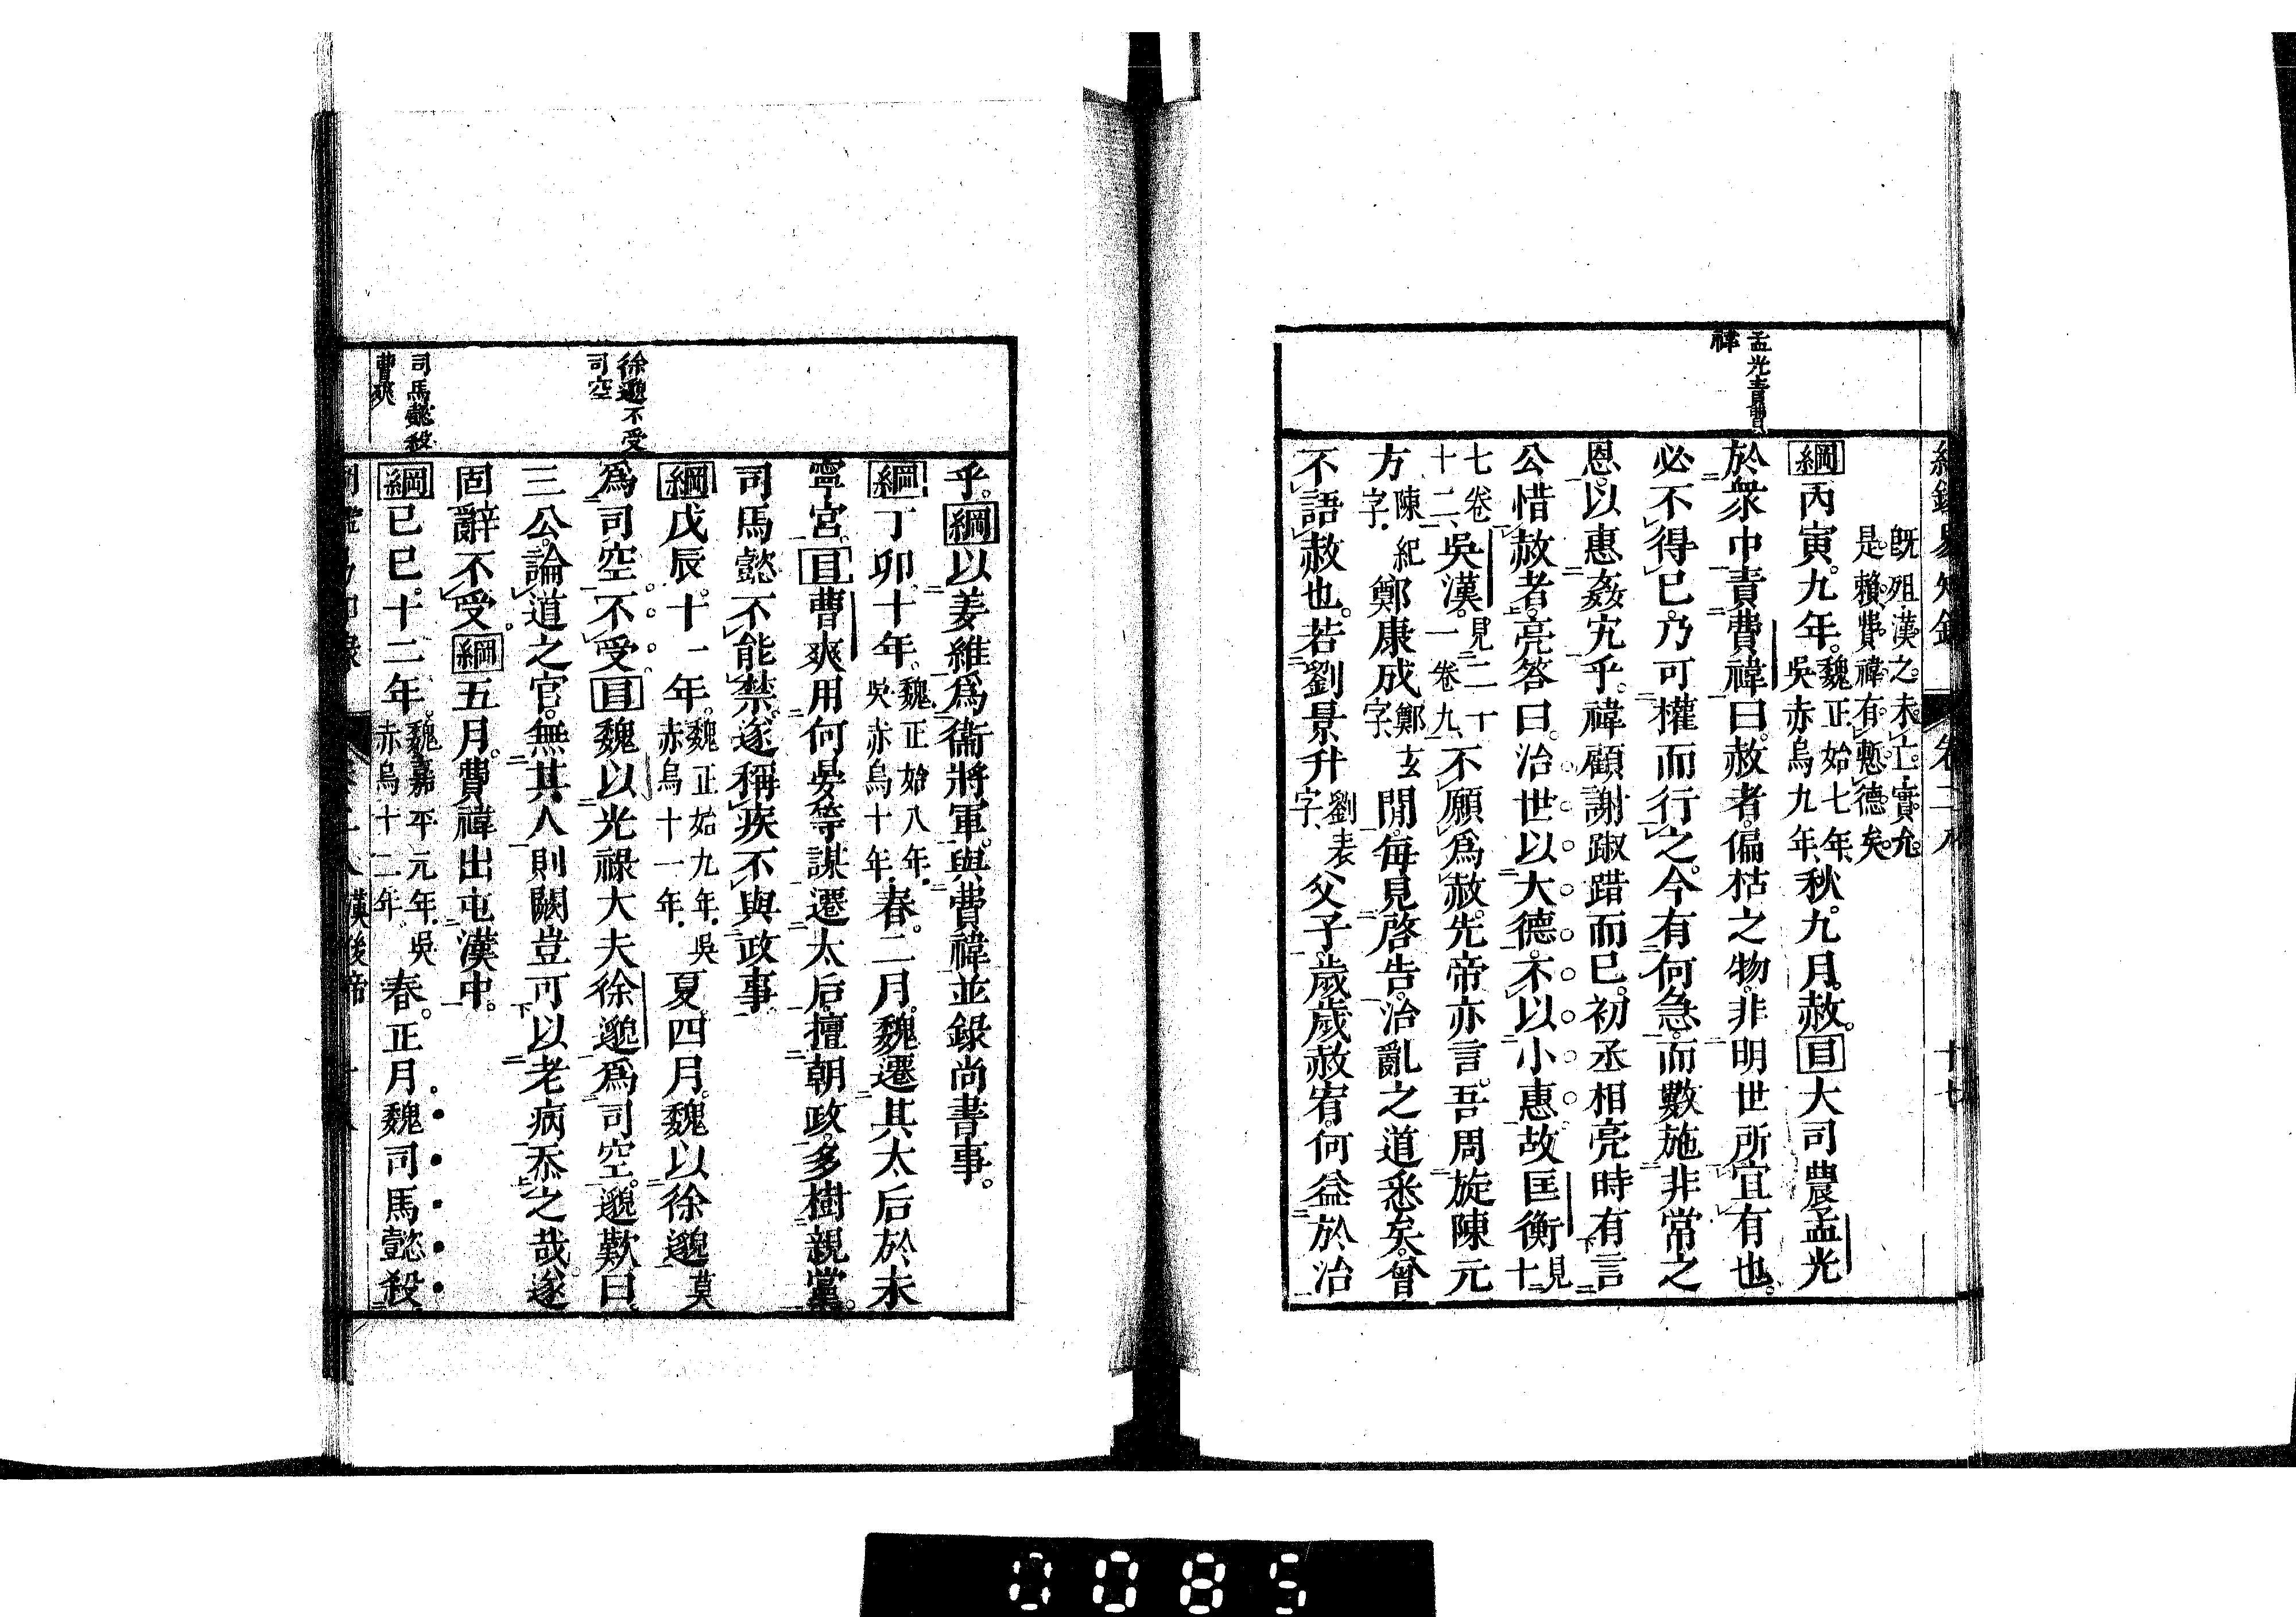 孟光責費
禕
既殂漢之未亡實允
是賴費禕有慙德矣
綱丙寅。九年。魏正始七年、吳赤烏九年、秋。九月。赦。目大司農孟光
於衆中責費禕曰。赦者。偏枯之物。非明世所宜有也。
必不得已。乃可權而行之。今有何急。而數施非常之
恩。以惠姦宄乎。禕顧謝踧踖而已。初丞相亮時有言
公惜赦者。亮答曰。治世以大德。不以小惠。故匡衡見十
七卷十二、吳漢。見二十一卷九、不願爲赦。先帝亦言。吾周旋陳元
方陳紀字、鄭康成鄭玄字、間。每見啓告。治亂之道悉矣。曾
不語赦也。若劉景升劉表字、父子。歲歲赦宥。何益於治
徐邈不受
司空
司馬懿殺
曹爽
乎。綱以姜維爲衞將軍。與費禕並錄尚書事。
綱丁卯。十年。魏正始八年。吳赤烏十年。春。二月。魏遷其太后於永
寧宮。目曹爽用何晏等謀遷太后。擅朝政。多樹親黨。
司馬懿不能禁。遂稱疾不與政事
綱戊辰。十一年。魏正始九年。吳赤烏十一年。夏。四月。魏以徐邈莫
爲司空。不受目魏以光祿大夫徐邈爲司空。邈歎曰
三公。論道之官。無其人則闕。豈可以老病忝之哉。遂
固辭不受。綱五月。費禕出屯漢中。
綱己巳。十二年。魏嘉平元年。吳赤烏十二年。春。正月魏司馬懿殺
漢後帝